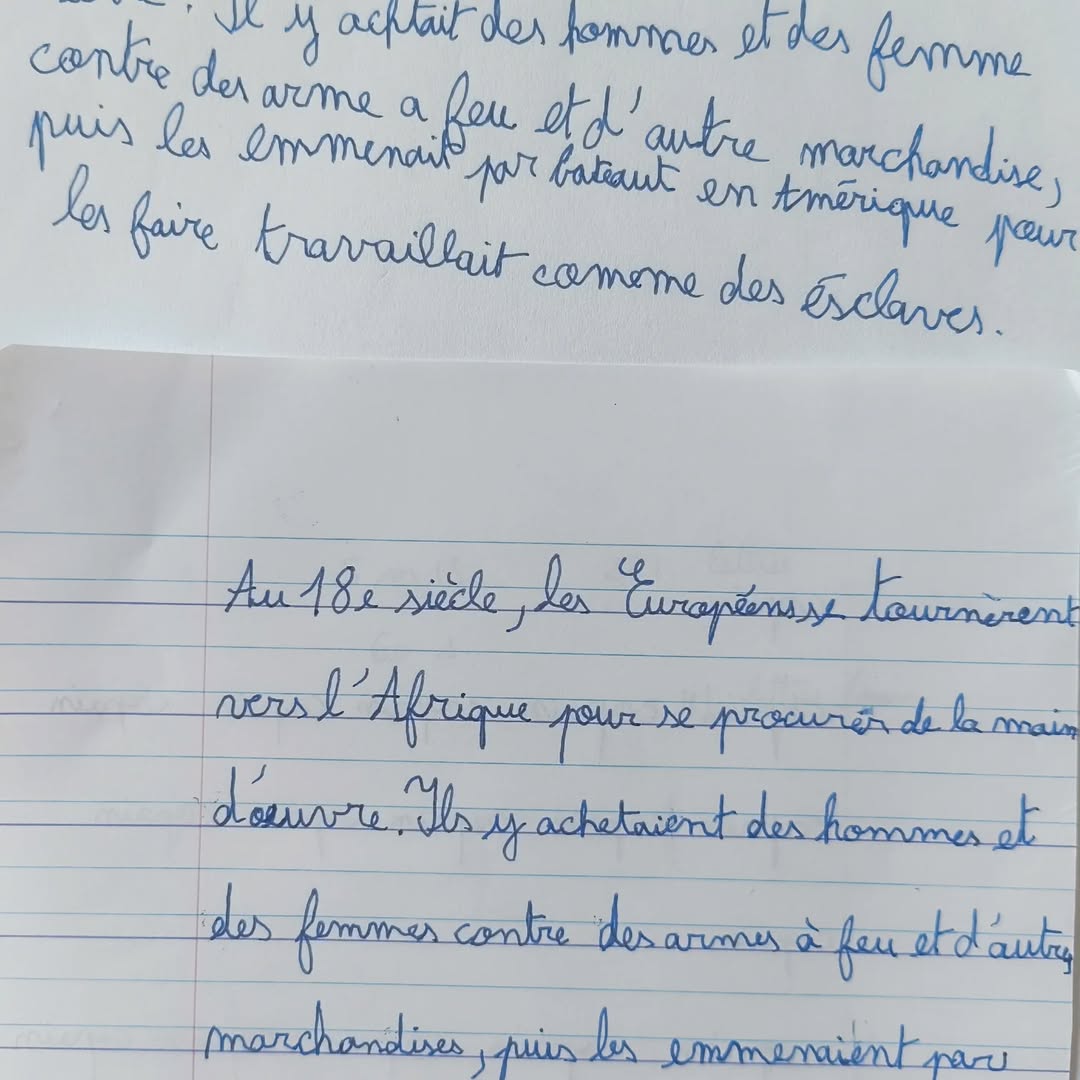 . Il y achtait des hommes et des femme
contre des arme a feu et d'autre marchandise,
puis les emmenait par bateaut en Amérique pour
les faire travaillait comeme des ésclaves.
Au 18e siècle, les Européens se tournèrent
vers l'Afrique pour se procurer de la main
d'œuvre. Ils y achetaient des hommes et
des femmes contre des armes à feu et d'autres
marchandises, puis les emmenaient par